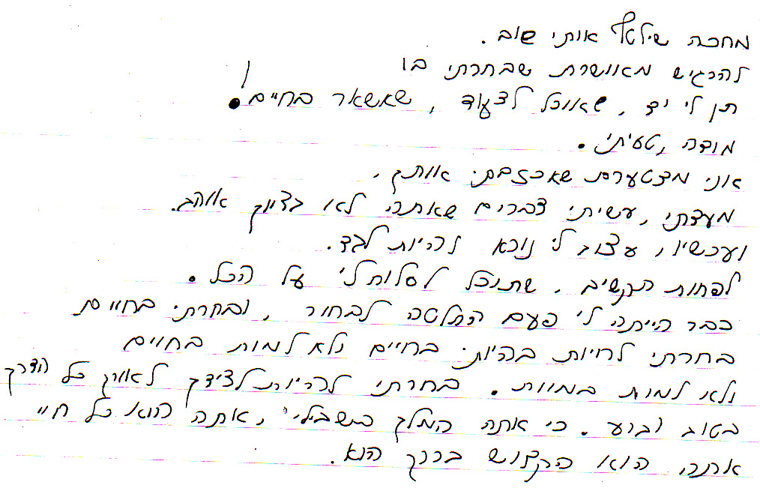 מחכה שילטף אותי שוב.
להרגיש מאושרת שבחרתי בו
תן לי יד, שאוכל לצעוד, שאשאר בחיים!
מודה, טעיתי.
אני מצטערת שאכזבתי אותך,
מעדתי, עשיתי דברים שאתה לא בדיוק אוהב.
ועכשיו, עצוב לי נורא להיות לבד.
לפחות תקשיב, שתוכל לסלוח לי על הכל.
כבר הייתה לי פעם החלטה לבחור, ובחרתי בחיים
בחרתי לחיות בהיותי בחיים ולא למות בחיים
ולא למות במוות. בחרתי להיות לצידך לאורך כל הדרך
בטוב וברע. כי אתה המלך בשבילי, אתה הוא כל חיי
אתה, הוא הקדוש ברוך הוא.